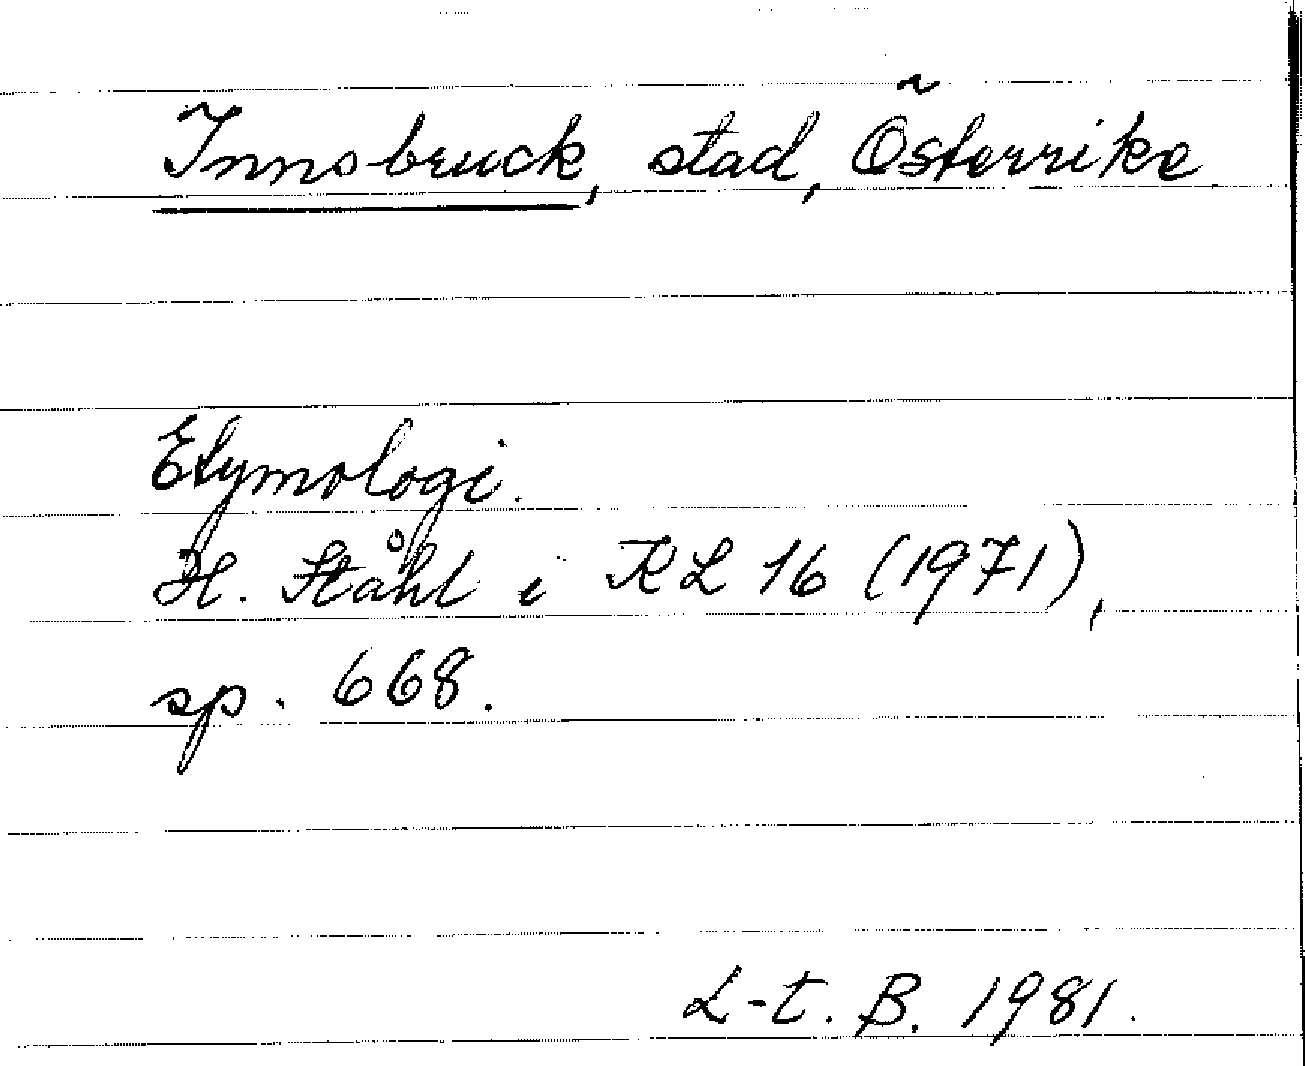 Innsbruck, stad, Österrike
Etymologi.
H. Ståhl i KL 16 (1971),
sp. 668.
L-t. B. 1981.